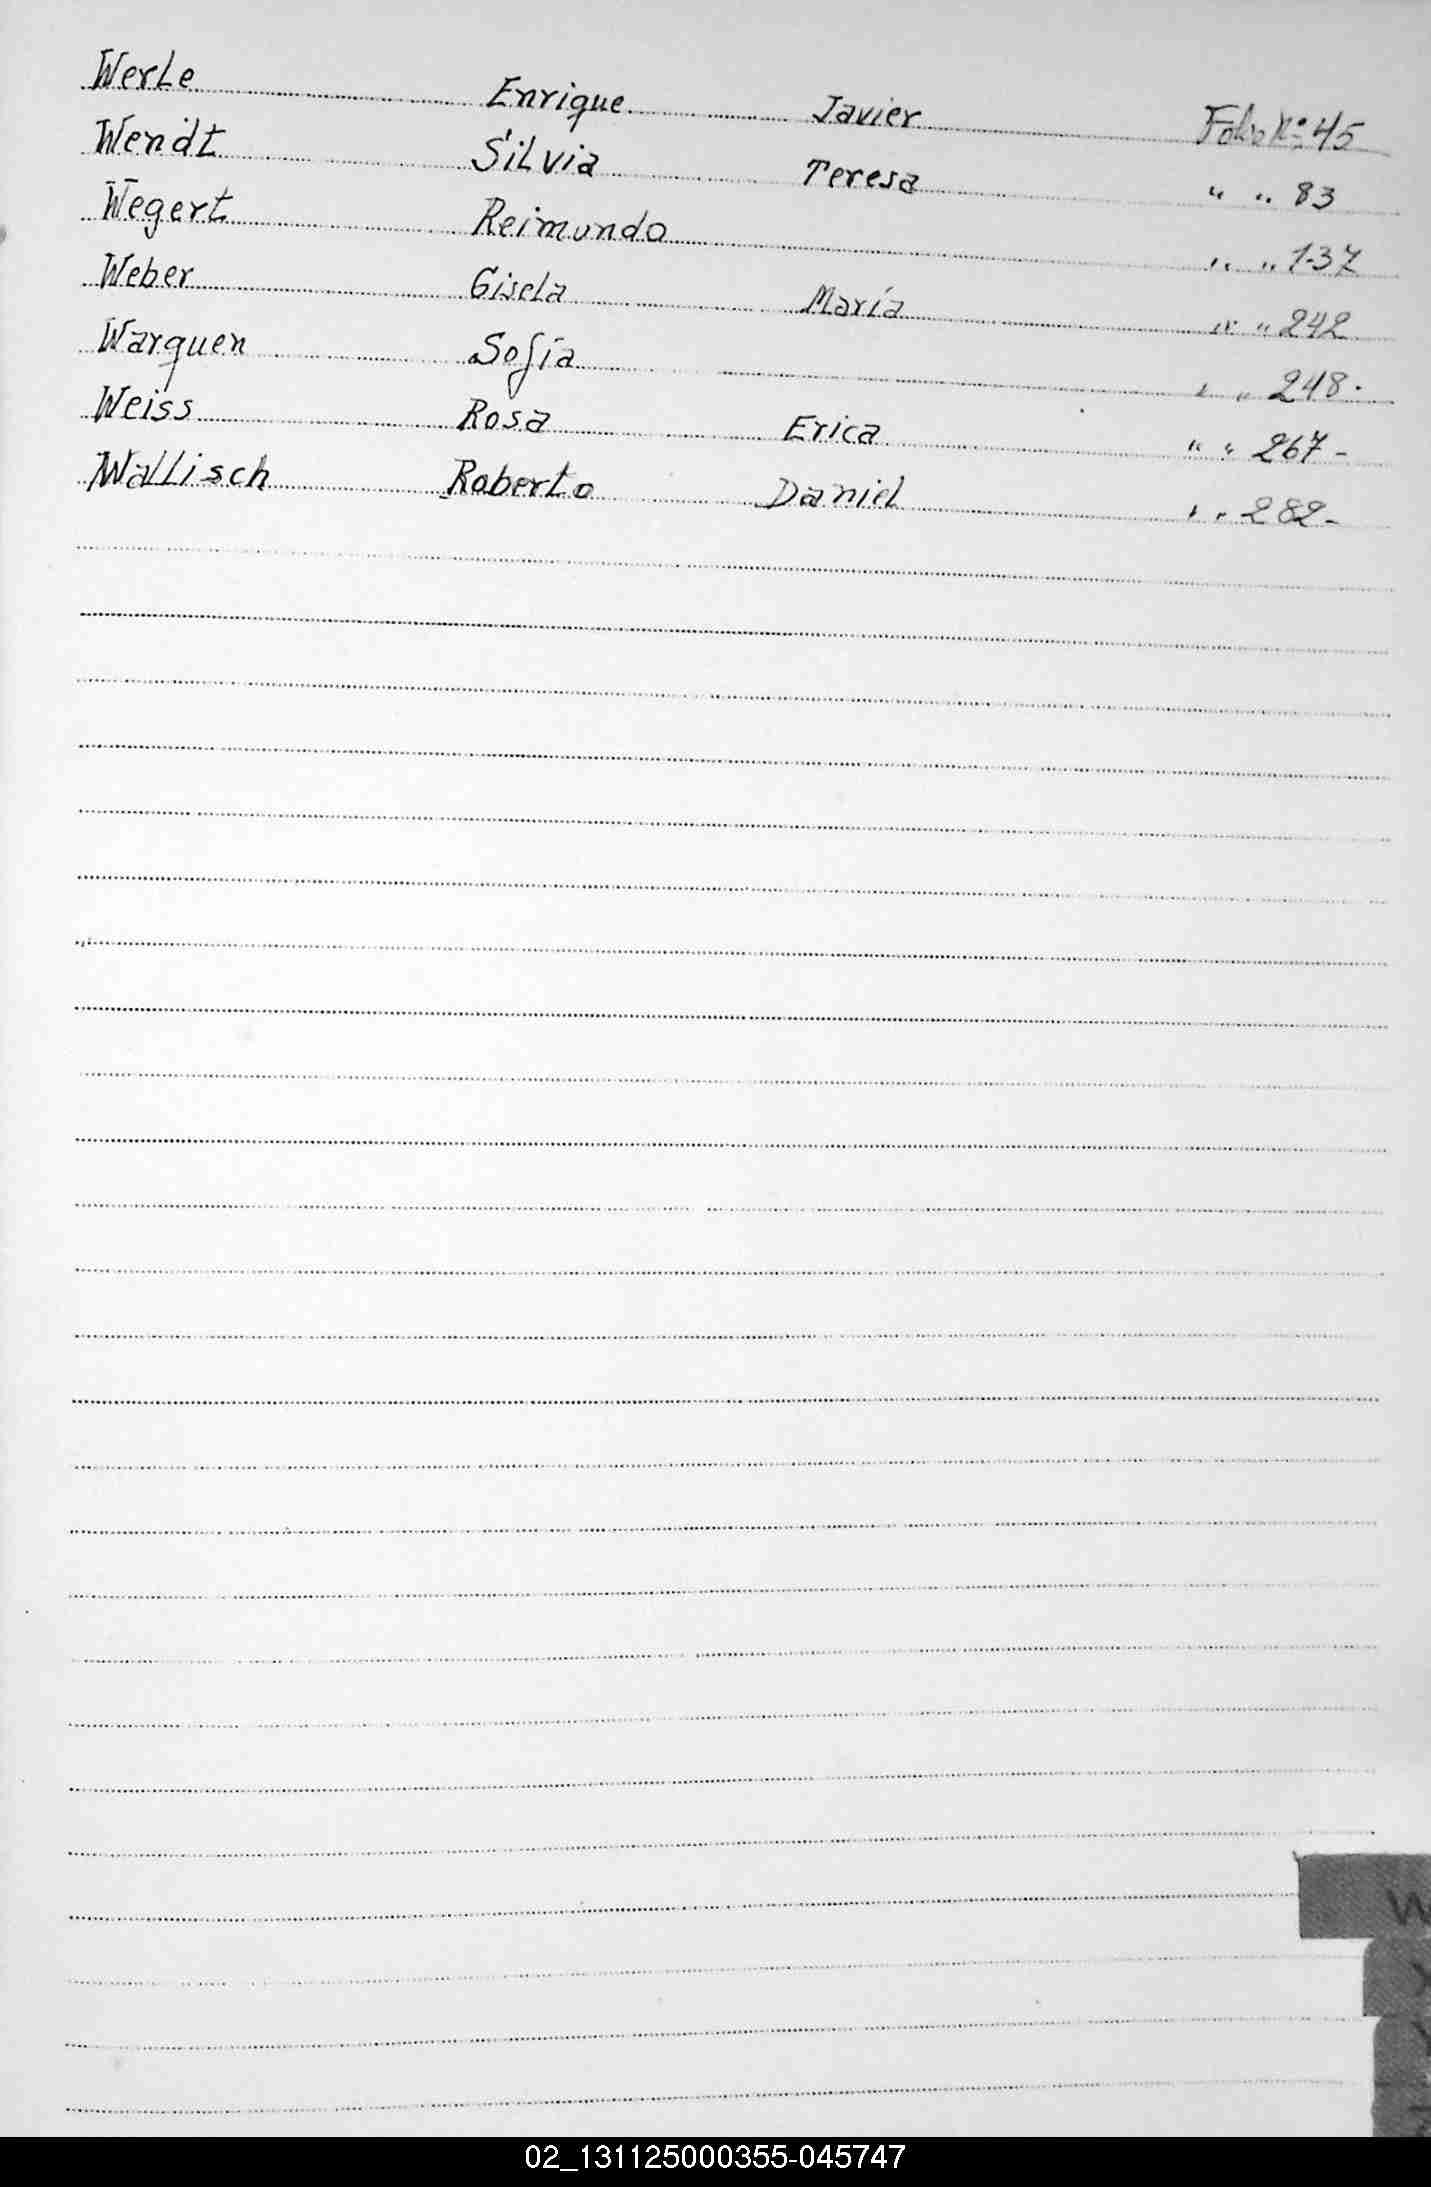 Werle Enrique Javier Folio Nº 45
Wendt Silvia Teresa " " 83
Wegert Reimundo " " 137
Weber Gisela María " " 242
Warquen Sofía " " 248.
Weiss Rosa Erica " " 267-
Wallisch Roberto Daniel " " 282-
W
X
Y
02_131125000355-045747